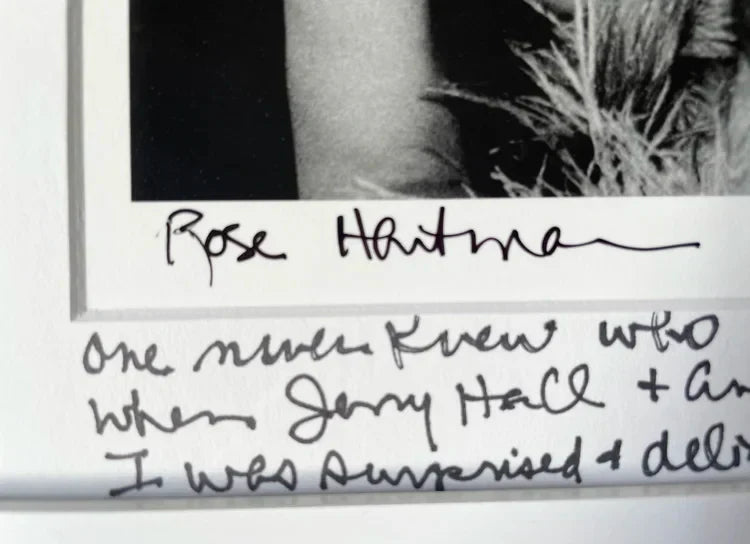 Rose Hartman
One never knew who
when Jerry Hall + An
I was surprised + deli